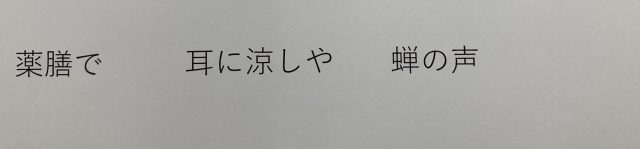 薬膳で　　耳に涼しや　　蝉の声